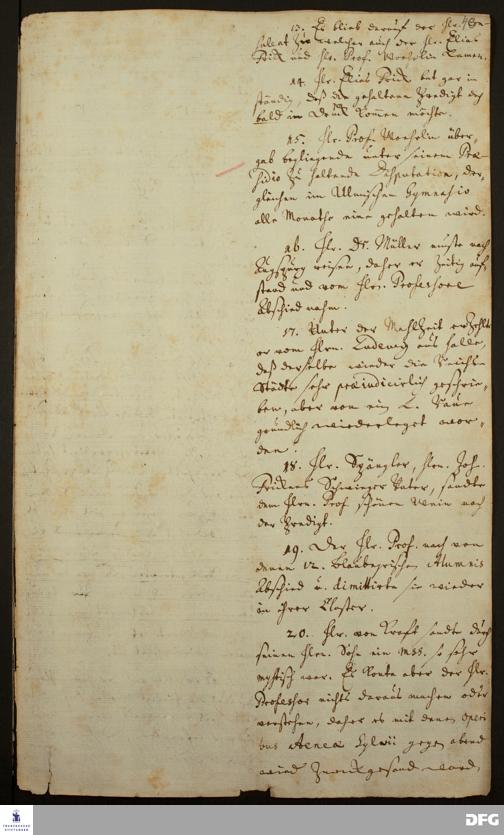 13. Es blieb darauf der Hr.
zu welchem auch der Hr. Elias
Frick und Hr. Prof. Woehelin kamen.
14. Hr. Elias Frick bat gar in-
ständig, daß die gehaltene Predigt doch
bald im Druck komen möchte.
15. Hr. Prof. Woehelin über-
gab beyliegende unter seinem Prae-
sidio zu haltende Disputation, der-
gleichen im Ulmischen Gymnasio
alle Monathe eine gehalten wird.
16. Hr. Dr. Müller muste nach
reisen, daher er zeitig auf-
stand und vom Hrn. Professore
Abschied nahm.
17. Unter der Mahlzeit erzehlte
er vom Hrn. Ludewig aus Halle,
daß derselbe wieder die Reichs-
Städte sehr praeiudicirlich geschrie-
ben, aber von
gründlich wiederleget wor-
den.
18. Hr. Spängler, Hrn. Joh.
Frickens Schwieger Vater, sandte
dem Hrn. Prof. schönen Wein nach
der Predigt.
19. Der Hr. Prof. nahm von
denen 12. Blaubeyrischen Alumnis
Abschied u. dimittirte sie wieder
in ihrer Closter.
20. Hr. von Kraft sandte durch
seinen Hrn. Sohn ein MSS. so sehr
mystisch war. Es konte aber der Hr.
Professor nichts daraus machen oder
verstehen, daher es mit denen operi-
bus Aeneae Sylvii gegen abend
zurückgesand ward.
DFG